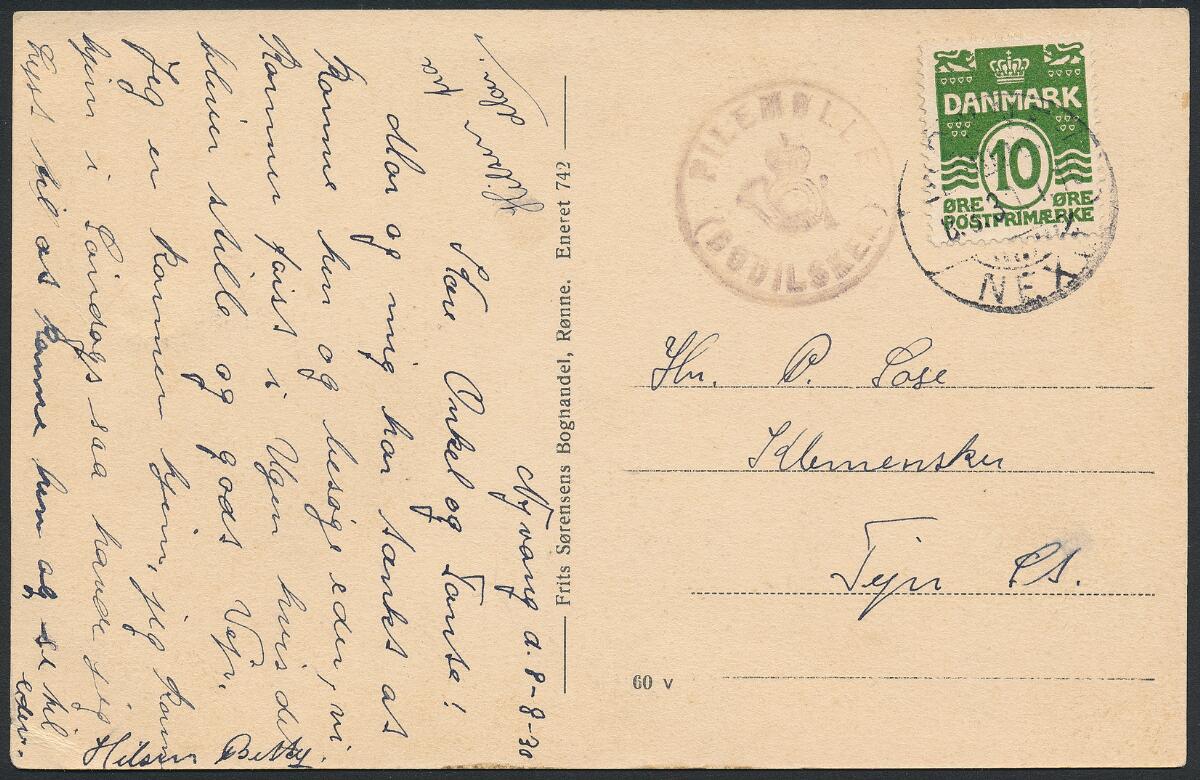 Nyvang d. 8-8-30
Kære Onkel og Tante!
Mor og mig har tænkt at
komme hen og besøge eder, vi
kommer faist i Ugen hvis det
bliver stille og godt Vejr.
Jeg er kommen hjem, jeg kom
hjem i Søndags saa havde jeg
Lyst til at komme hen og se til
eder.
Hilsen Betty.
fra
Mor.
Frits Sørensens Boghandel, Rønne. Eneret 742
PILEMØLLE
(BODILSKER)
DANMARK
10
ØRE ØRE
POSTFRIMÆRKE
NEX
Hr. P. Lose
Klemensker
Tejn St.
60 v